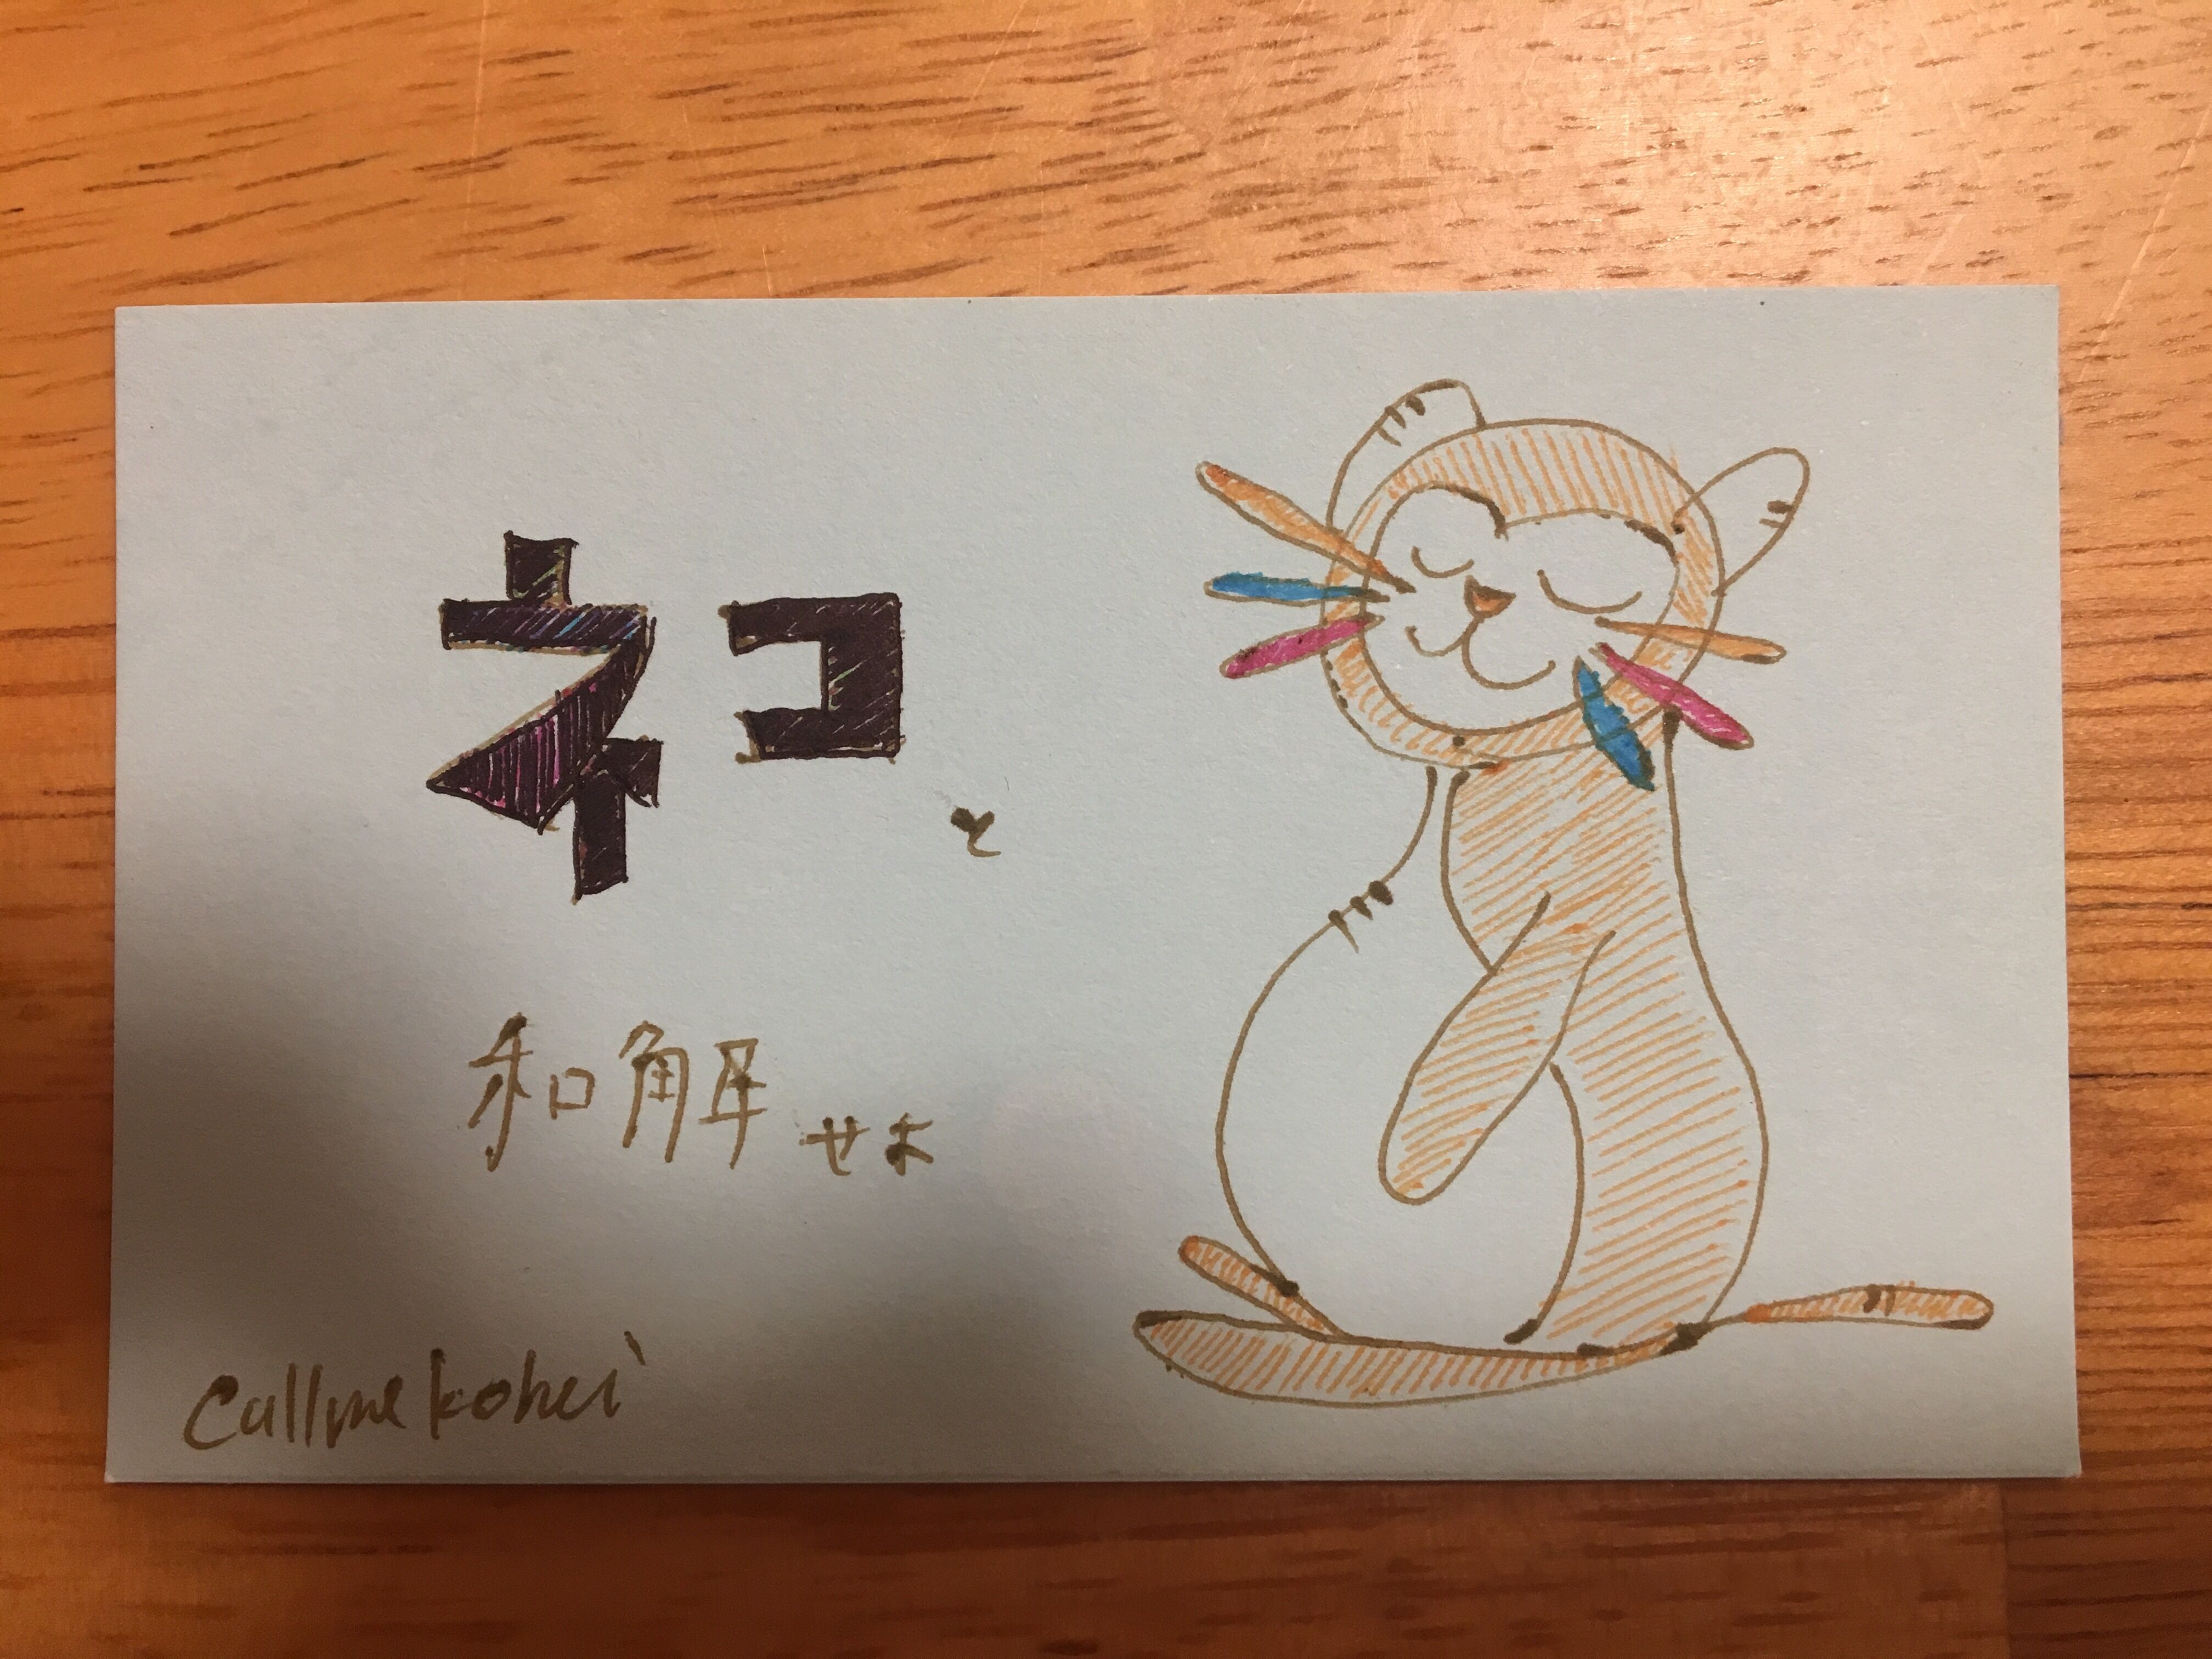 ネコと
和解せよ
callmekohei